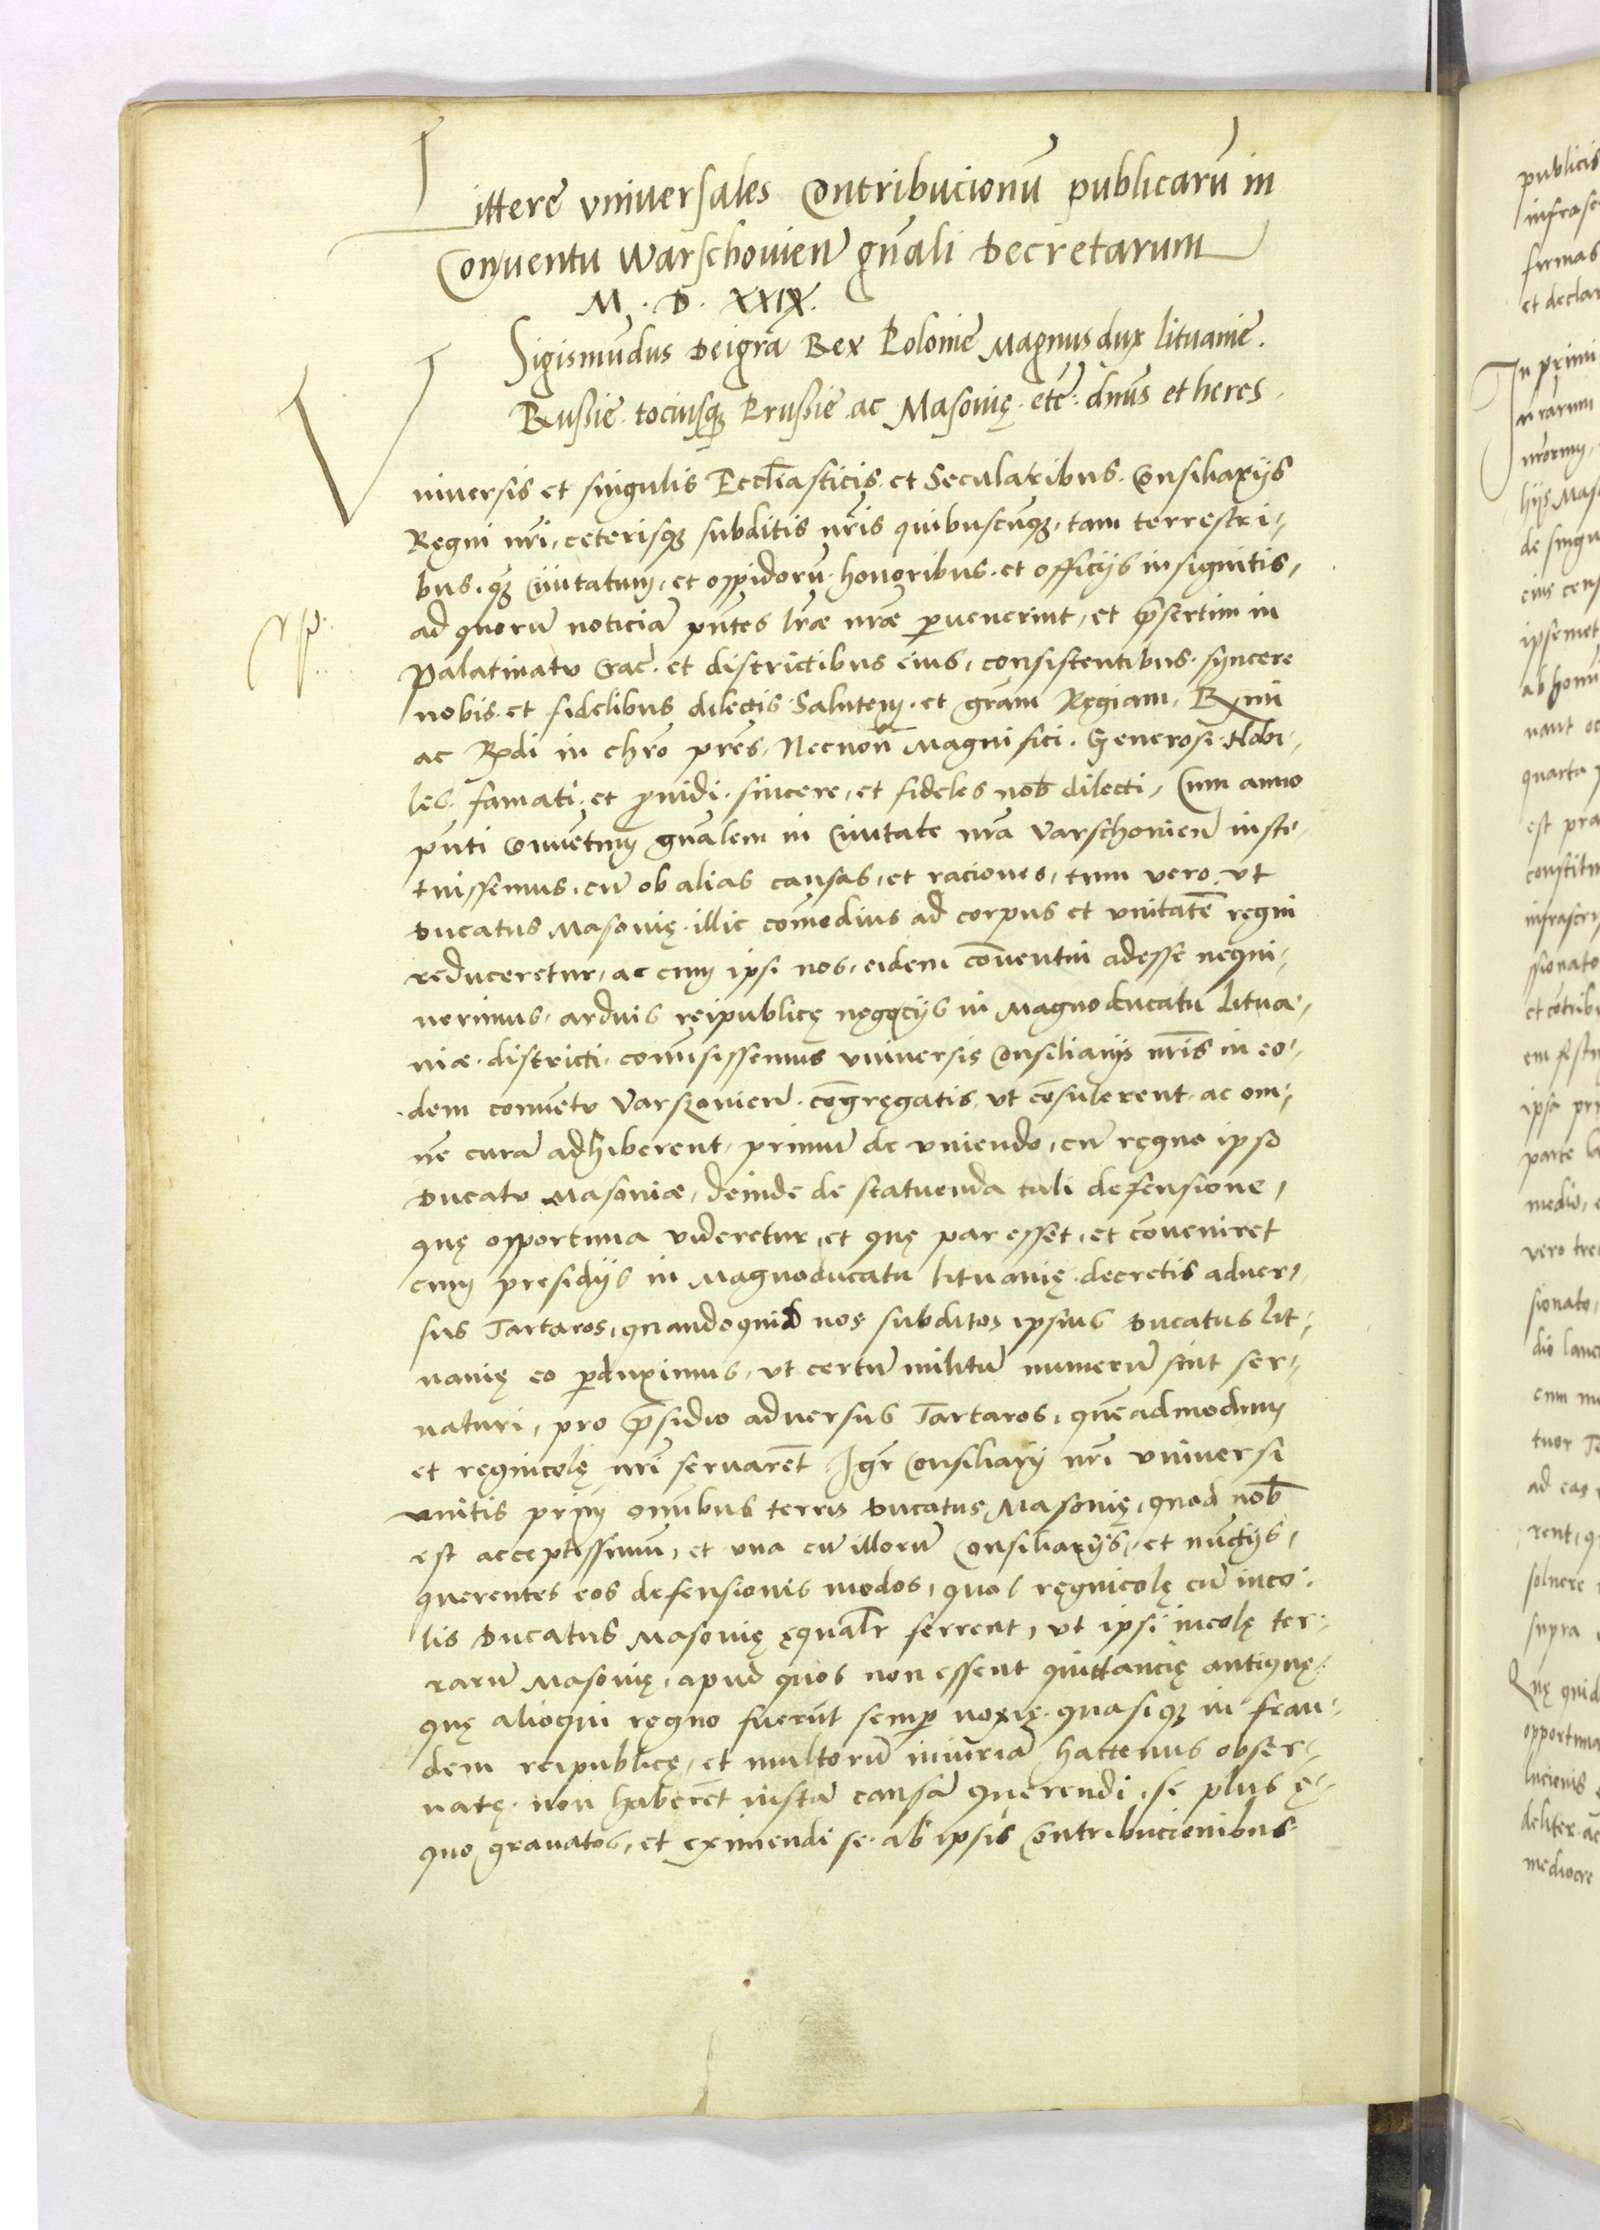 Littere vniuersales Contribucionū publicarū in
Conuentu Warschouien̄ gn̄ali Decretarum
M. D. XXIX.
Sigismūdus Dei gr̄a Rex Polonie Magnus dux Lituanie.
Russie tociusq3 Prussie ac Masovię etc̄. dn̄us et heres.
Vniuersis et singulis Eccl̄iasticis et Secularibus. Consiliarijs
Regni nr̄i, ceterisq3 subditis nr̄is quibuscūq3, tam terrestri-
bus, q3 Ciuitatum, et oppidorū honoribus et officijs insignitis,
ad quorū noticiā pn̄tes lr̄æ nr̄æ peruenerint, et p̄sertim in
Palatinatu Crac̄. et districtibus eius, consistentibus, syncere
nobis et fidelibus dilectis Salutem et grām Regiam. Rm̄i
ac Rn̄di in chr̄o pr̄es, Necnon̄ Magnifici. Generosi Nobi-
les. famati et prouidi. sincere, et fideles nob̄ dilecti, Cum anno
pn̄ti Conuētum gn̄alem in Ciuitate nr̄a Varschouien̄ insti-
tuissemus, cū ob alias causas, et raciones, tum vero, vt
Ducatus Masovię illic cōmodius ad corpus et vnitatē regni
reduceretur, ac cum ipsi nos, eidem cōuentui adesse nequi-
uerimus, arduis reipublicę negocijs in Magnoducatu Litua-
niæ districti, comīsissemus vniuersis Consiliarijs nr̄is in eo-
dem conuētu Varszouien̄ congregatis, vt cōsulerent ac om-
nē curā adhiberent, primū de vniendo, cū regno ipso
Ducatu Masoviæ, deinde de statuenda tali defensione,
quę opportuna videretur, et quę par esset, et cōueniret
cum presidijs in Magnoducatu lituanię decretis aduer-
sus Tartaros, quandoquid nos subditos ipsius Ducatus Lit-
uanię eo perduximus, vt certū militū numerū sint ser-
uaturi, pro p̄sidio aduersus Tartaros, quēadmodum
et regnicolę nr̄i seruarēt. Igr̄ Consiliarij nr̄i vniuersi
vnitis prim̄ om̄ibus terris Ducatus Masovię, quod nob̄
est acceptissimū, et vna cū illorū Consiliarijs, et nūcijs,
querentes eos defensionis modos, quos regnicolę cū inco-
lis Ducatus Masovię ęqualr̄ ferrent, vt ipsi incolę ter-
rarū Masovię, apud quos non essent quittancię antiquę
quę alioqui regno fuerūt semper noxię quasiq3 in frau-
dem reipublicę, et multorū iniuriā hactenus obser-
uatę, non haberēt iustā causā querendi, se plus ę-
quo grauatos, et eximendi se ab ipsis Contribucionibus
publicis
infrasc
firmas
et declar
In primi
hijs Maso
de singu
eius cens
ipsemet
ab homi
uant oc
quarta
est pra
constitu
infrascri
ssionato
et cōtribu
em festu
ipsa pri
parte la
medio,
vero tre
sionato,
dio lane
cum me
tuor
ad eas
rent, q
soluere
supra
Quę quid
opportuna
lucionis
deliter ac
mediocre